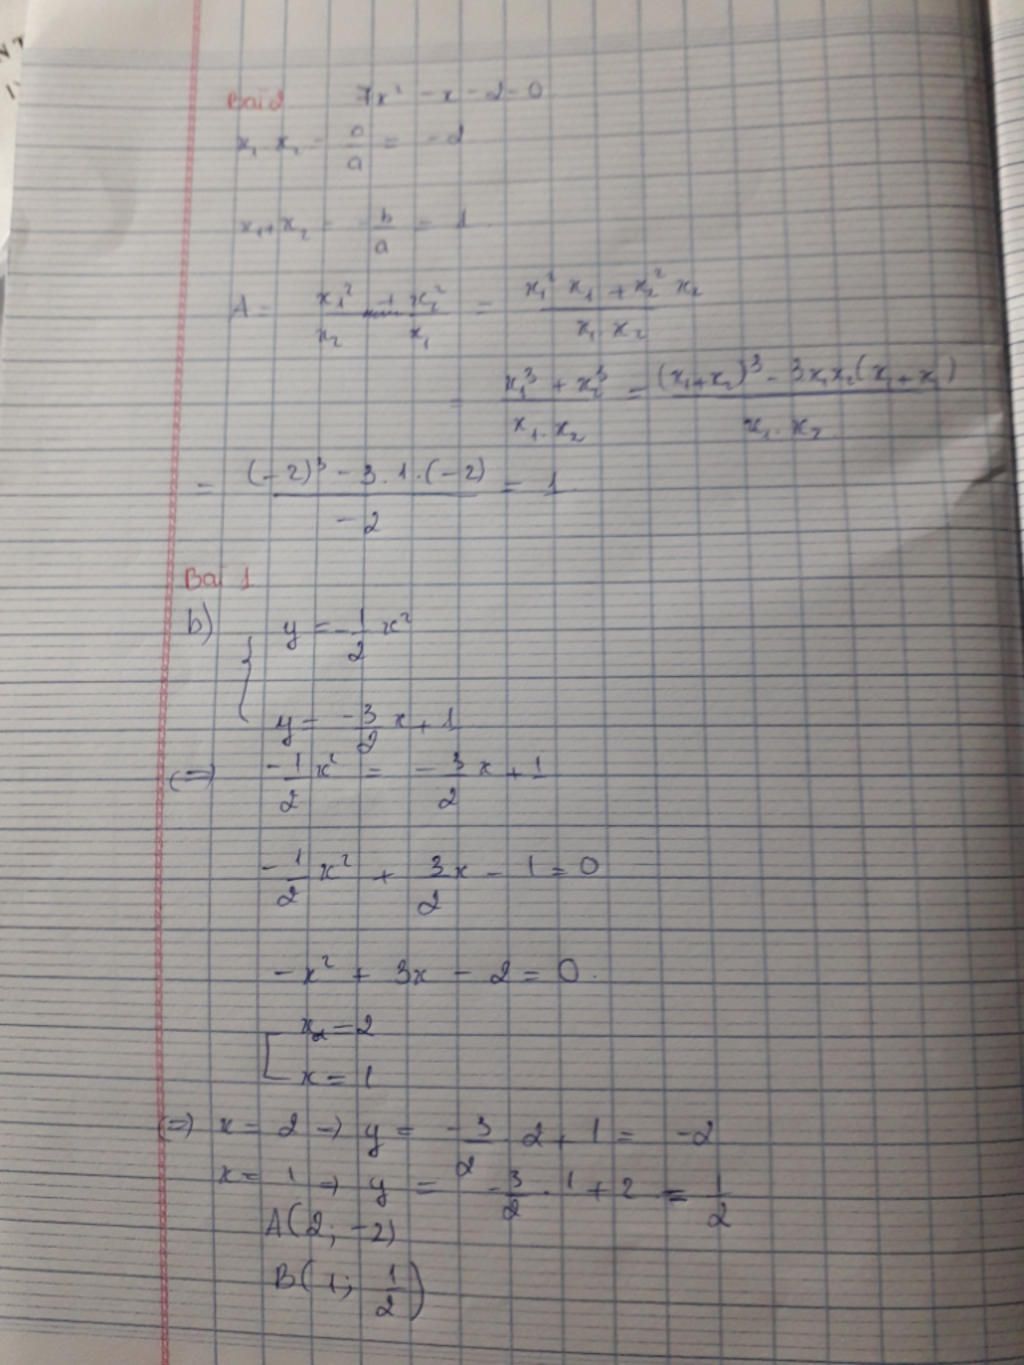 Bài 2 7x² - x - 2 = 0
x₁ x₂ = c/a = -2
x₁ + x₂ = -b/a = 1
A = x₁²/x₂ + x₂²/x₁ = (x₁² x₁ + x₂² x₂)/(x₁ x₂)
= (x₁³ + x₂³)/(x₁ . x₂) = ((x₁ + x₂)³ - 3x₁x₂(x₁ + x₂))/(x₁ . x₂)
= ((-2)³ - 3 . 1 . (-2))/(-2) = 1
Bài 1
b) { y = -1/2 x²
y = -3/2 x + 1
(=) -1/2 x² = -3/2 x + 1
-1/2 x² + 3/2 x - 1 = 0
-x² + 3x - 2 = 0
[ x = 2
x = 1
(=) x = 2 => y = -3/2 2 + 1 = -2
x = 1 => y = -3/2 . 1 + 2 = 1/2
A(2; -2)
B(1; 1/2)